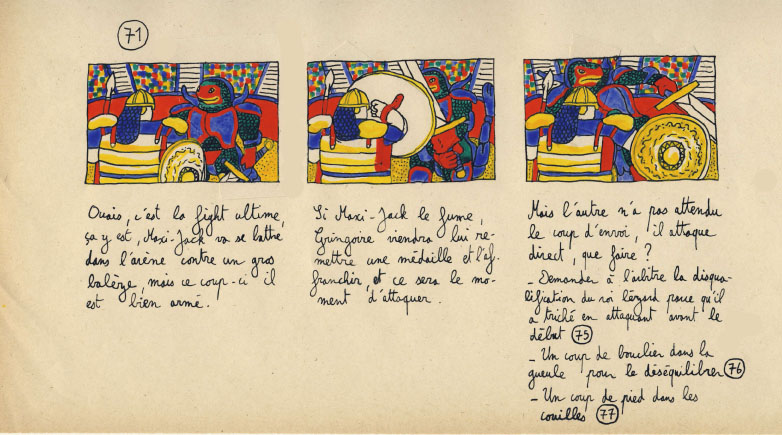 71
Ouais, c'est la fight ultime,
ça y est, Maxi-Jack va se battre
dans l'arène contre un gros
balèze, mais ce coup-ci il
est bien armé.
Si Maxi-Jack le fume,
Gringoire viendra lui re-
mettre une médaille et l'af-
franchir, et ce sera le mo-
ment d'attaquer.
Mais l'autre n'a pas attendu
le coup d'envoi, il attaque
direct, que faire ?
- Demander à l'arbitre la disqua-
lification du roi lézard parce qu'il
a triché en attaquant avant le
début 75
- Un coup de bouclier dans la
gueule pour le déséquilibrer 76
- Un coup de pied dans les
couilles 77